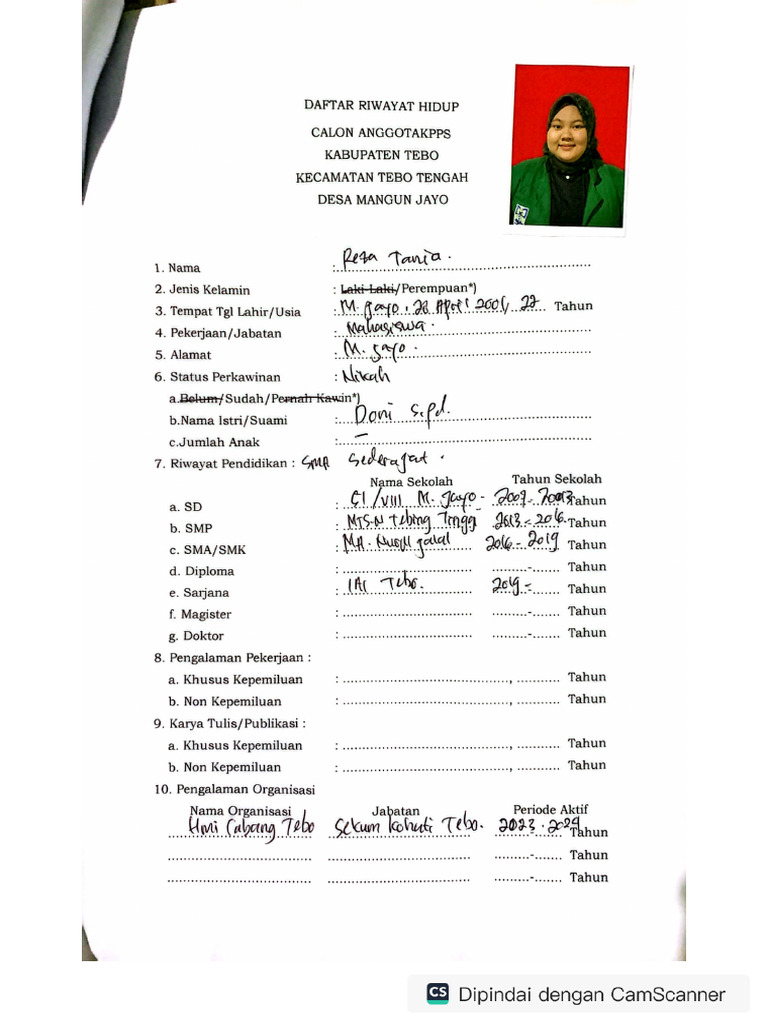 DAFTAR RIWAYAT HIDUP
CALON ANGGOTAKPPS
KABUPATEN TEBO
KECAMATAN TEBO TENGAH
DESA MANGUN JAYO
1. Nama : Reza Tania.
2. Jenis Kelamin : Laki-Laki/Perempuan*)
3. Tempat Tgl Lahir/Usia : M. Jayo, 28 April 2001, 22 Tahun
4. Pekerjaan/Jabatan : Mahasiswa.
5. Alamat : M. Jayo.
6. Status Perkawinan : Nikah
a.Belum/Sudah/Pernah Kawin*)
b.Nama Istri/Suami : Doni S.pd.
c.Jumlah Anak : –
7. Riwayat Pendidikan : SMA Sederajat.
Nama Sekolah Tahun Sekolah
a. SD : /VIII M. Jayo - Tahun
b. SMP : MTS.N Tebing Tinggi 2013 - 2016 Tahun
c. SMA/SMK : MA. 2016 - 2019 Tahun
d. Diploma : ............................... .........-....... Tahun
e. Sarjana : IAI Tebo. 2019 - Tahun
f. Magister : ............................... .........-....... Tahun
g. Doktor : ............................... .........-....... Tahun
8. Pengalaman Pekerjaan :
a. Khusus Kepemiluan : ........................................., ........... Tahun
b. Non Kepemiluan : ........................................., ........... Tahun
9. Karya Tulis/Publikasi :
a. Khusus Kepemiluan : ........................................., ........... Tahun
b. Non Kepemiluan : ........................................., ........... Tahun
10. Pengalaman Organisasi
Nama Organisasi Jabatan Periode Aktif
Hmi Cabang Tebo Sekum Kohati Tebo. 2023 - 2024 Tahun
................................... .................................. .........-....... Tahun
................................... .................................. .........-....... Tahun
CS Dipindai dengan CamScanner